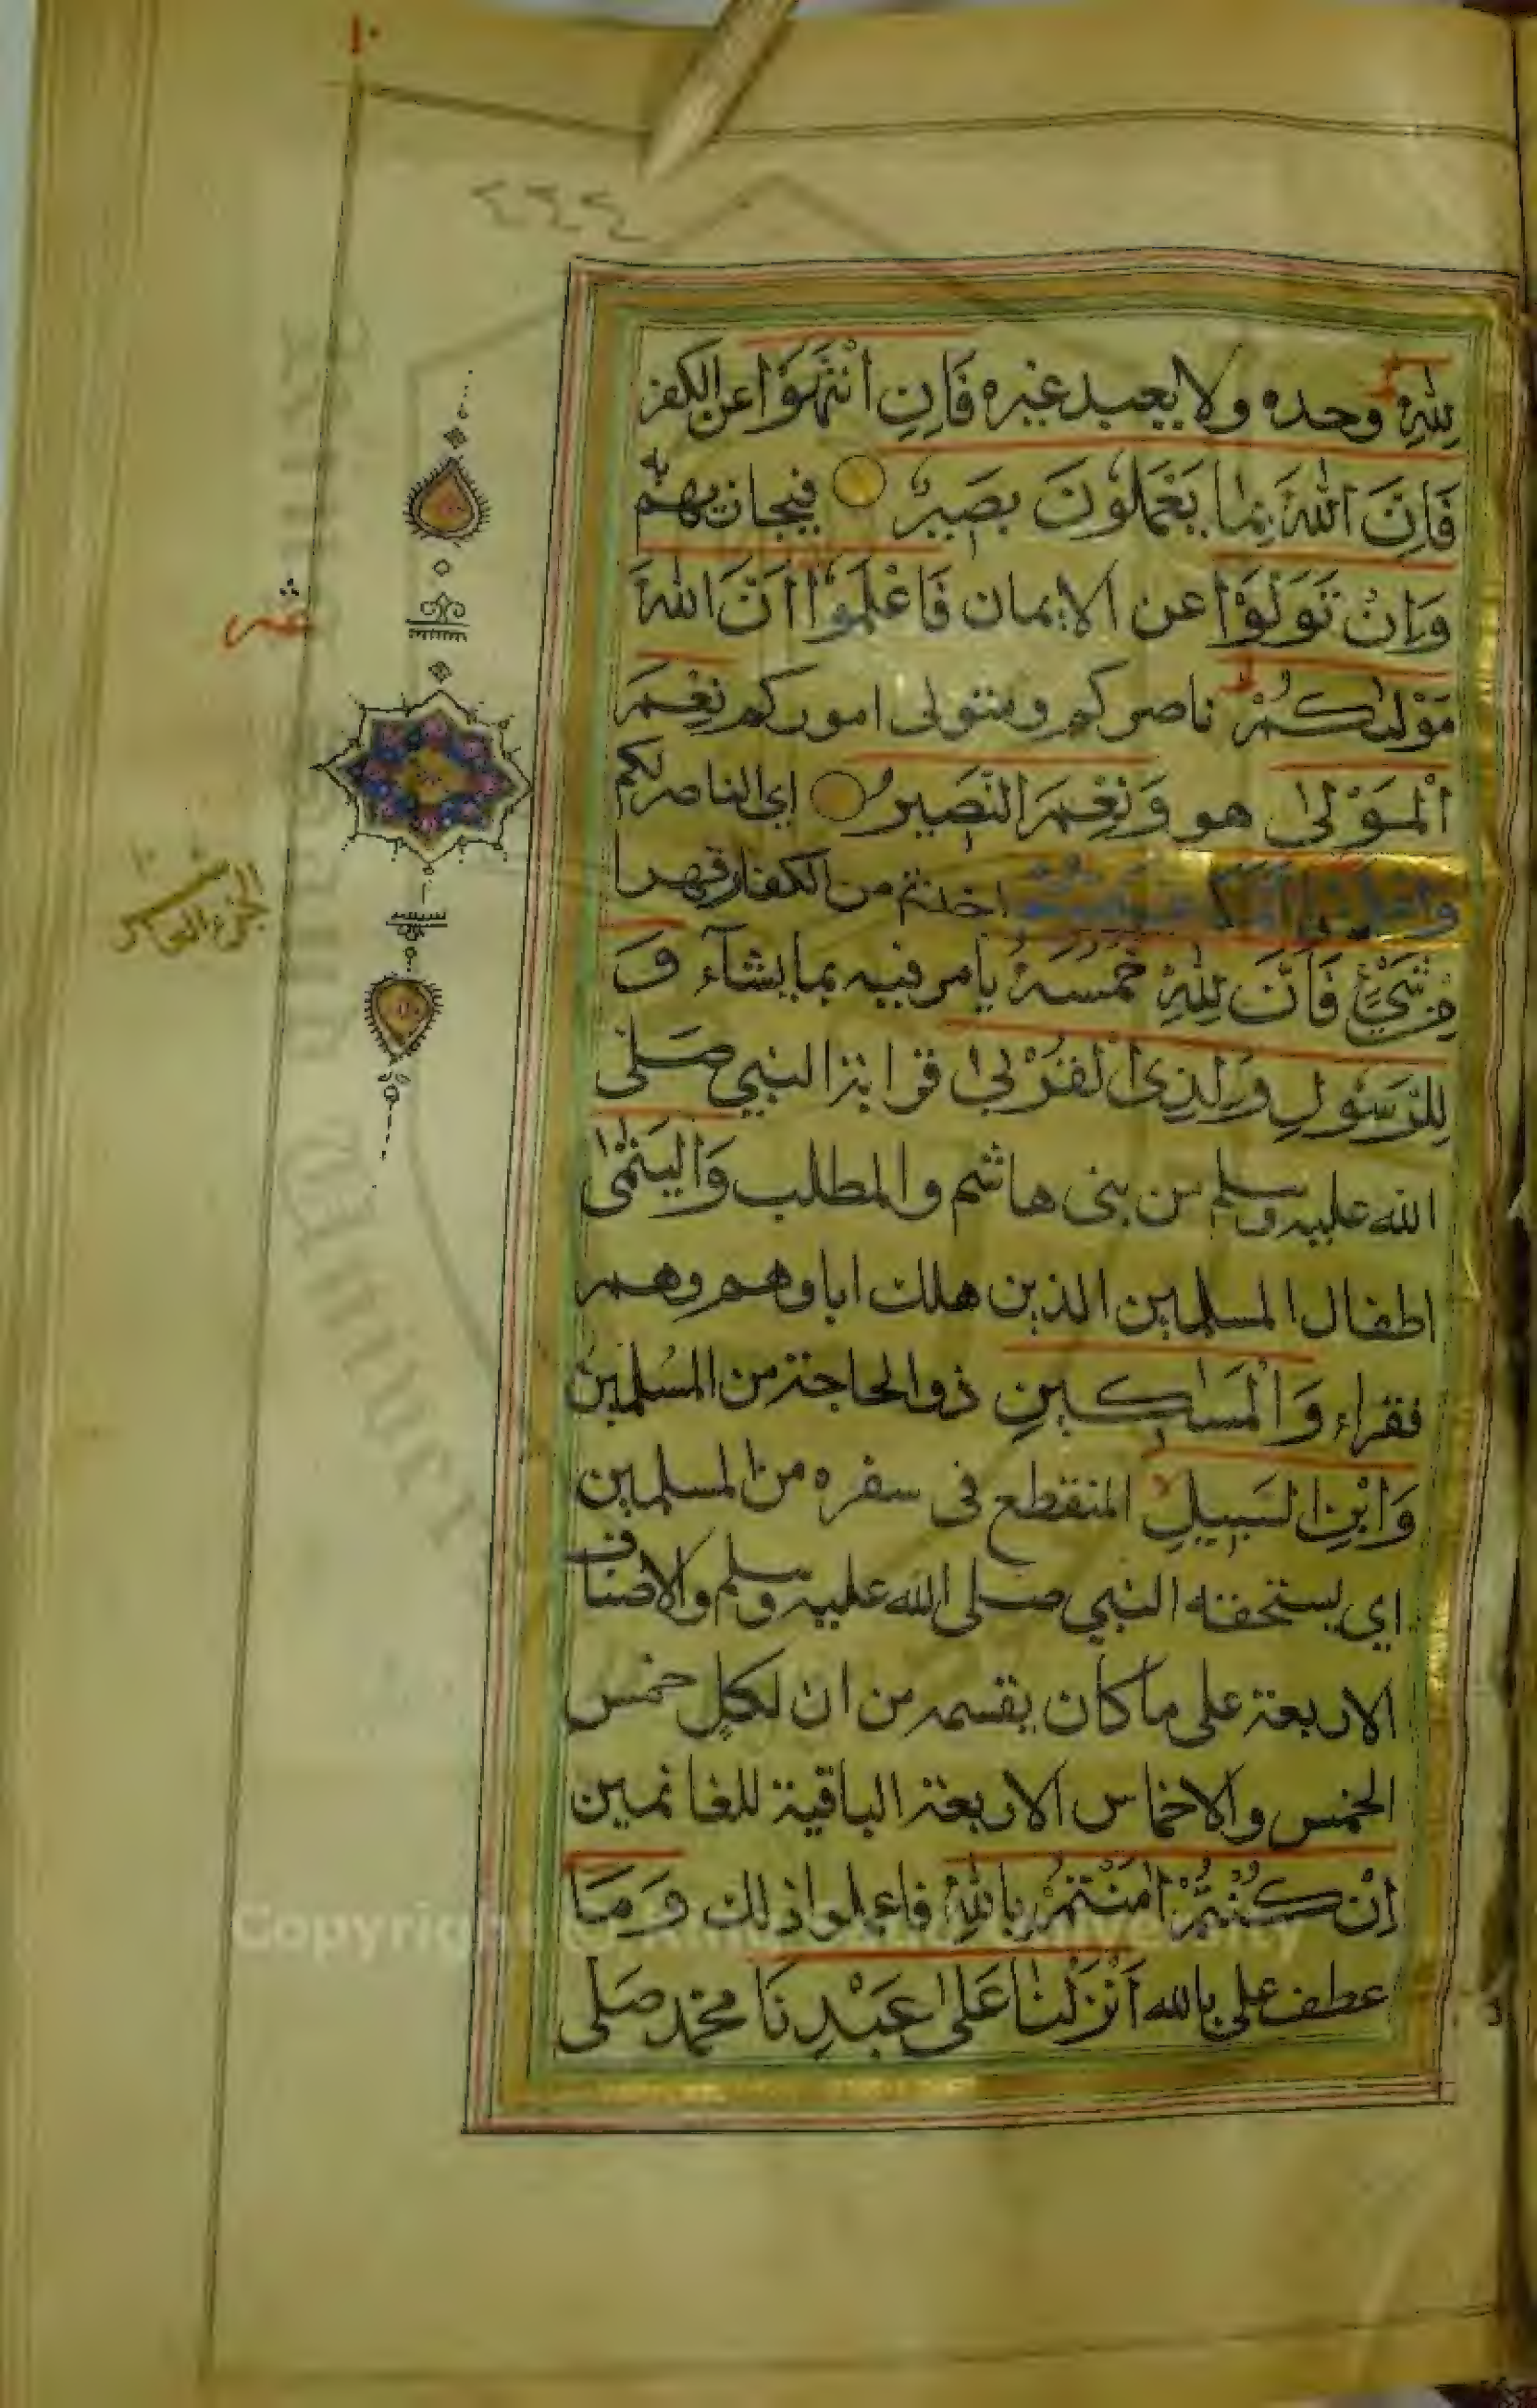 ١٠
٤٣٤
لِلَّهِ وحده ولا يعبد غيره فَاِنِ انْتَهَوْا عن الكفر
فَاِنَّ اللّٰهَ بِمَا يَعْمَلُونَ بَصِيرٌ فيجازيهم به
وَاِنْ تَوَلَّوْا عن الايمان فَاعْلَمُوٓا اَنَّ اللّٰهَ
مَوْلٰىكُمْ ناصركم ومتولى اموركم نِعْمَ
الْمَوْلٰى هو وَنِعْمَ النَّصِيرُ اي الناصر لكم
وَاعْلَمُوا اَنَّمَا غَنِمْتُمْ اخذتم من الكفار قهرا
مِنْ شَيْءٍ فَاَنَّ لِلّٰهِ خُمُسَهُ يأمر فيه بما يشآء وَ
لِلرَّسُولِ وَلِذِى الْقُرْبٰى قرابة النبي صلى
الله عليه وسلم من بنى هاشم والمطلب وَالْيَتٰمٰى
اطفال المسلمين الذين هلك اباوهم وهم
فقراء وَالْمَسَاكِينِ ذوالحاجة من المسلمين
وَابْنِ السَّبِيلِ المنقطع فى سفره من المسلمين
اي يستحقه النبي صلى الله عليه وسلم والاصناف
الاربعة على ما كان يقسمه من ان لكل خمس
الخمس والاخماس الاربعة الباقية للغانمين
اِنْ كُنْتُمْ اٰمَنْتُمْ بِاللّٰهِ فاعملوا ذلك وَمَا
عطف على بالله اَنْزَلْنَا عَلٰى عَبْدِنَا محمد صلى
عشر
الجزء العاشر
١٠
Copyright © University